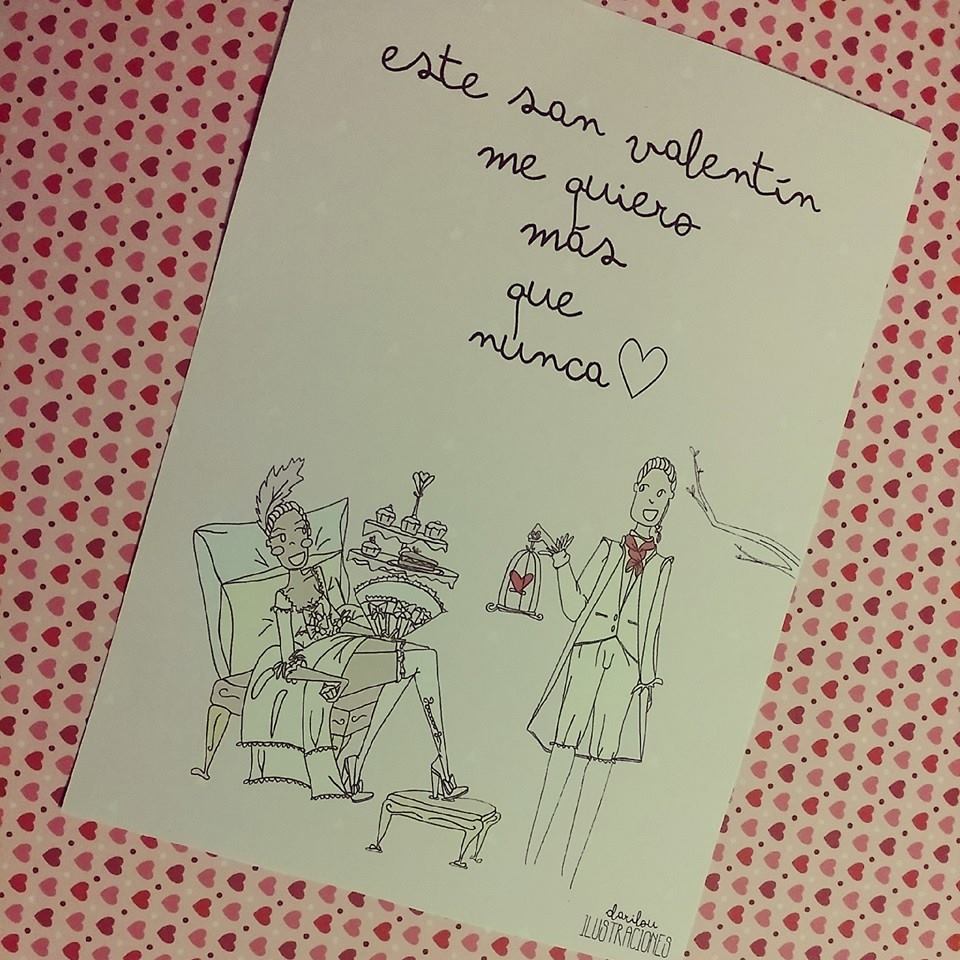 este san valentín
me quiero
más
que
nunca
darilou
ILUSTRACIONES